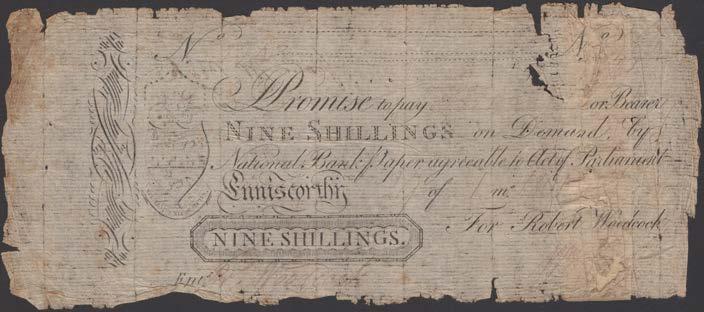 No No
I Promise to pay or Bearer
NINE SHILLINGS on Demand, by
National Bank Paper agreeable to Act of Parliament
Enniscorthy of
For Robert Woodcock
NINE SHILLINGS.
Entd